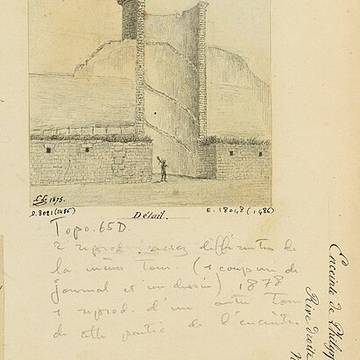 1875.
D.8021(1486)
Détail.
E.18048(1486)
Topo.65D
2 reprod. assez différentes de
la même tour (1 coupure de
journal et un dessin) 1878
1 reprod. d'une autre tour
de cette partie de l'enceinte
Enceinte de Philippe
Rive droite